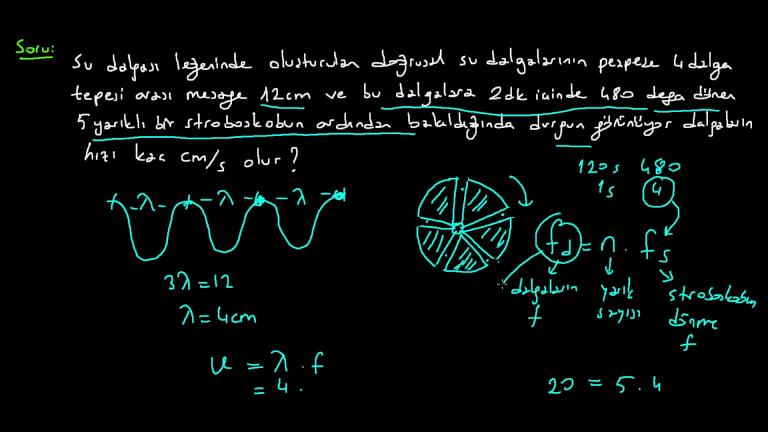 Soru:
Su dalgası leğeninde oluşturulan doğrusal su dalgalarının peşpeşe 4 dalga
tepesi arası mesafe 12 cm ve bu dalgalara 2dk içinde 480 defa dönen
5 yarıklı bir stroboskobun ardından bakıldığında durgun görünüyor dalgaların
hızı kaç cm/s olur?
120s 480
1s 4
λ λ λ
fd = n . fs
dalgaların yarık stroboskobun
f sayısı dönme
f
3λ = 12
λ = 4cm
v = λ . f
= 4 .
20 = 5 . 4